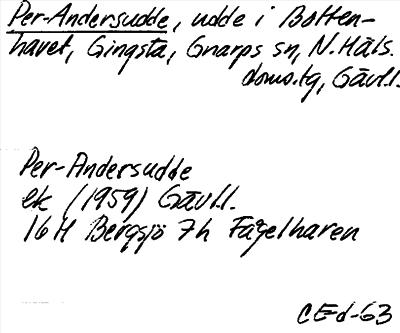 Per-Andersudde, udde i Botten-
havet, Gingsta, Gnarps sn, N. Häls.
doms.tg, Gävl.l.
Per-Andersudde
ek (1959) Gävl.l.
16 H Bergsjö 7h Fågelharen
CEd-63